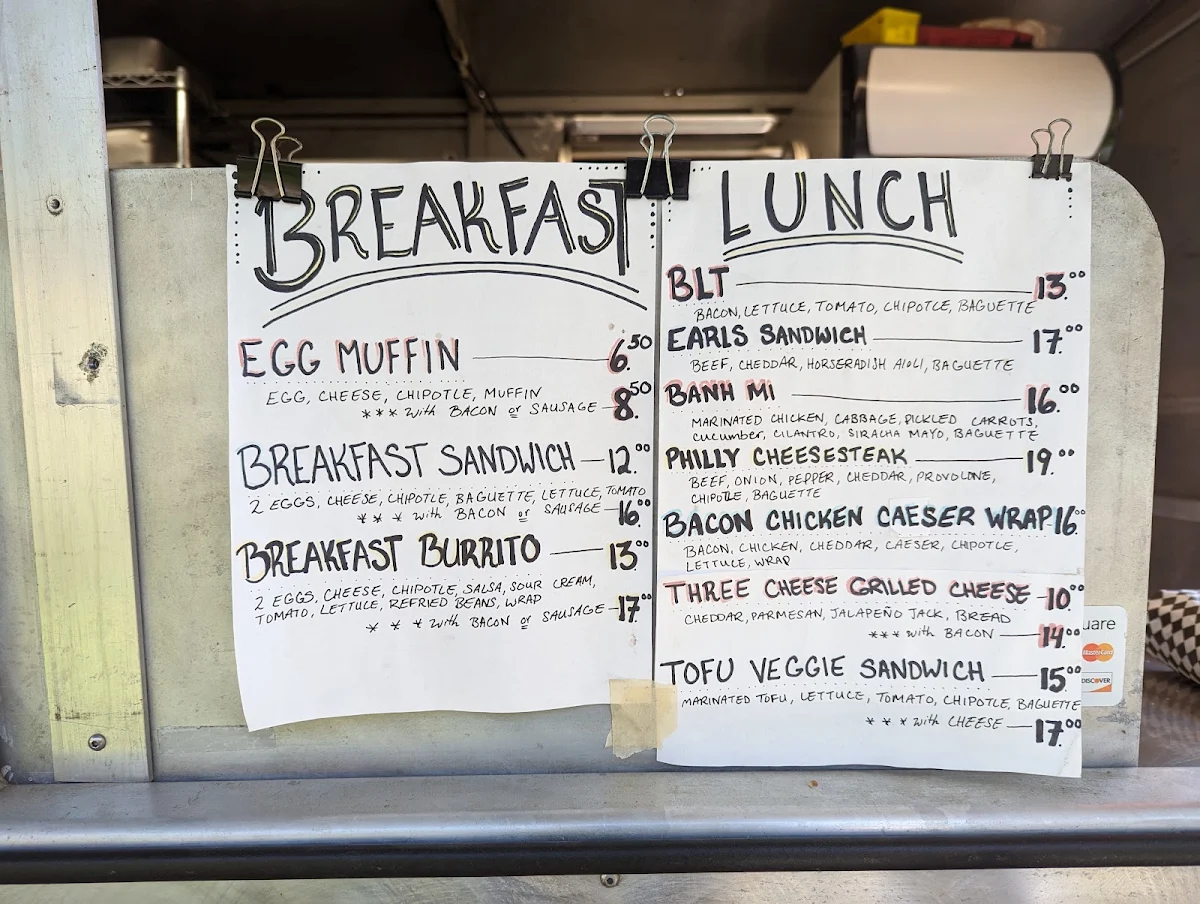 BREAKFAST
EGG MUFFIN 6.50
EGG, CHEESE, CHIPOTLE, MUFFIN
*** with BACON or SAUSAGE 8.50
BREAKFAST SANDWICH 12.00
2 EGGS, CHEESE, CHIPOTLE, BAGUETTE, LETTUCE, TOMATO
*** with BACON or SAUSAGE 16.00
BREAKFAST BURRITO 13.00
2 EGGS, CHEESE, CHIPOTLE, SALSA, SOUR CREAM,
TOMATO, LETTUCE, REFRIED BEANS, WRAP
*** with BACON or SAUSAGE 17.00
LUNCH
BLT 13.00
BACON, LETTUCE, TOMATO, CHIPOTLE, BAGUETTE
EARLS SANDWICH 17.00
BEEF, CHEDDAR, HORSERADISH AIOLI, BAGUETTE
BANH MI 16.00
MARINATED CHICKEN, CABBAGE, PICKLED CARROTS,
cucumber, CILANTRO, SIRACHA MAYO, BAGUETTE
PHILLY CHEESESTEAK 19.00
BEEF, ONION, PEPPER, CHEDDAR, PROVOLONE,
CHIPOTLE, BAGUETTE
BACON CHICKEN CAESER WRAP 16.00
BACON, CHICKEN, CHEDDAR, CAESER, CHIPOTLE,
LETTUCE, WRAP
THREE CHEESE GRILLED CHEESE 10.00
CHEDDAR, PARMESAN, JALAPEÑO JACK, BREAD
*** with BACON 14.00
TOFU VEGGIE SANDWICH 15.00
MARINATED TOFU, LETTUCE, TOMATO, CHIPOTLE, BAGUETTE
*** with CHEESE 17.00
uare
MasterCard
DISCOVER